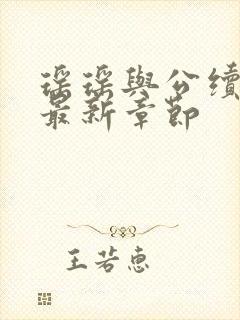 瑶瑶與公續
最新章節
王若惠